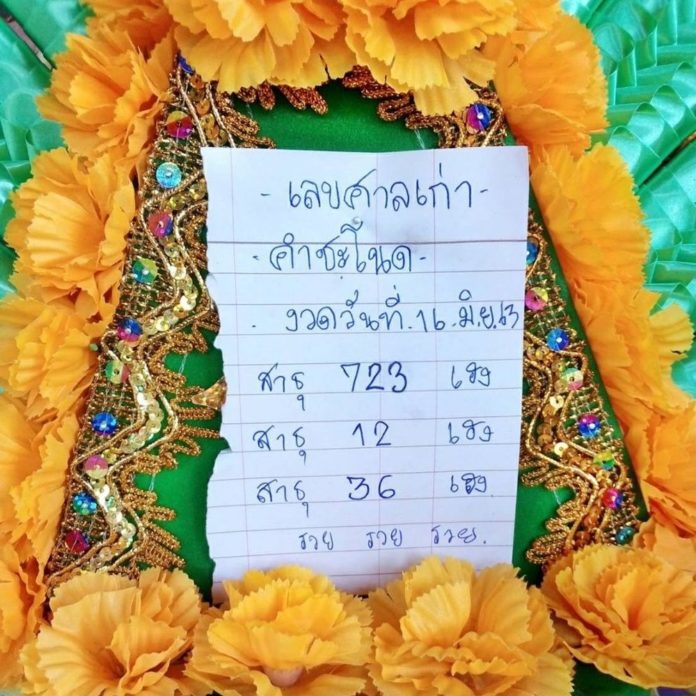 - เลขศาลเก่า -
- คำชะโนด -
. งวดวันที่ . 16 . มิ.ย. 63
สาธุ 723 เฮง
สาธุ 12 เฮง
สาธุ 36 เฮง
รวย รวย รวย.